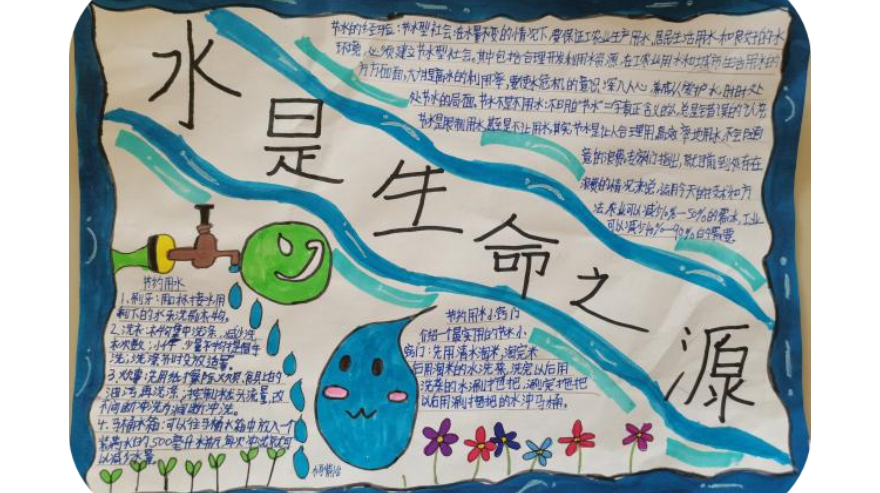 水是生命之源
节水的经验：节水型社会在水量不变的情况下，要保证工农业生产用水，居民生活用水和良好的水
环境，必须建立节水型社会。其中包括合理开发利用水资源，在工农业用水和城市生活用水的
方方面面，大力提高水的利用率，要使水危机的意识深入人心，养成人人爱护水，时时处
处节水的局面。节水不是不用水：不明的"节水"二字真正含义的人总是错误的认为
节水是限制用水，甚至是不让用水。其实节水是让人合理用，高效率地用水，不会随
意的浪费。专家们指出，就目前
浪费的情况来说，运用今天的技术和方
法，农业可以减少10%—50%的需水，工业
可以减少40%—90%的需要
节约用水
1、刷牙：用口杯接水用
剩下的水来洗
2、洗衣：衣物集中洗涤，减少洗
衣次数；小件、少量衣物提倡手
洗；洗涤剂过量
3、炊事：先用纸擦除炊具、食具上的
油污，再洗涤；控制水龙头流量，改
不间断冲洗为间断冲洗。
4、马桶水箱：可以往马桶水箱中放入一个
装满水的500毫升水瓶，每次冲洗就可
以减少水量
节约用水小窍门
介绍一个最实用的节水小
窍门：先用清水淘米，淘完米
后用淘米的水洗菜，洗完以后用
洗菜的水涮拖把，涮完拖把
以后用涮拖把的水冲马桶。